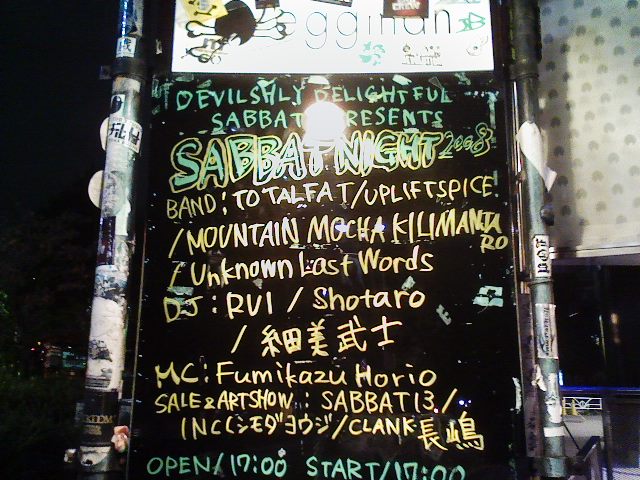 eggman
DEVILSHLY DELIGHTFUL
SABBAT PRESENTS
SABBAT NIGHT 2008
BAND: TOTALFAT/UPLIFTSPICE
/MOUNTAIN MOCHA KILIMANJARO
/Unknown Last Words
DJ: RUI / Shotaro
/ 細美武士
MC: Fumikazu Horio
SALE & ARTSHOW: SABBAT13./
INCCシモダヨウジ/CLANK長嶋
OPEN/17:00 START/17:00